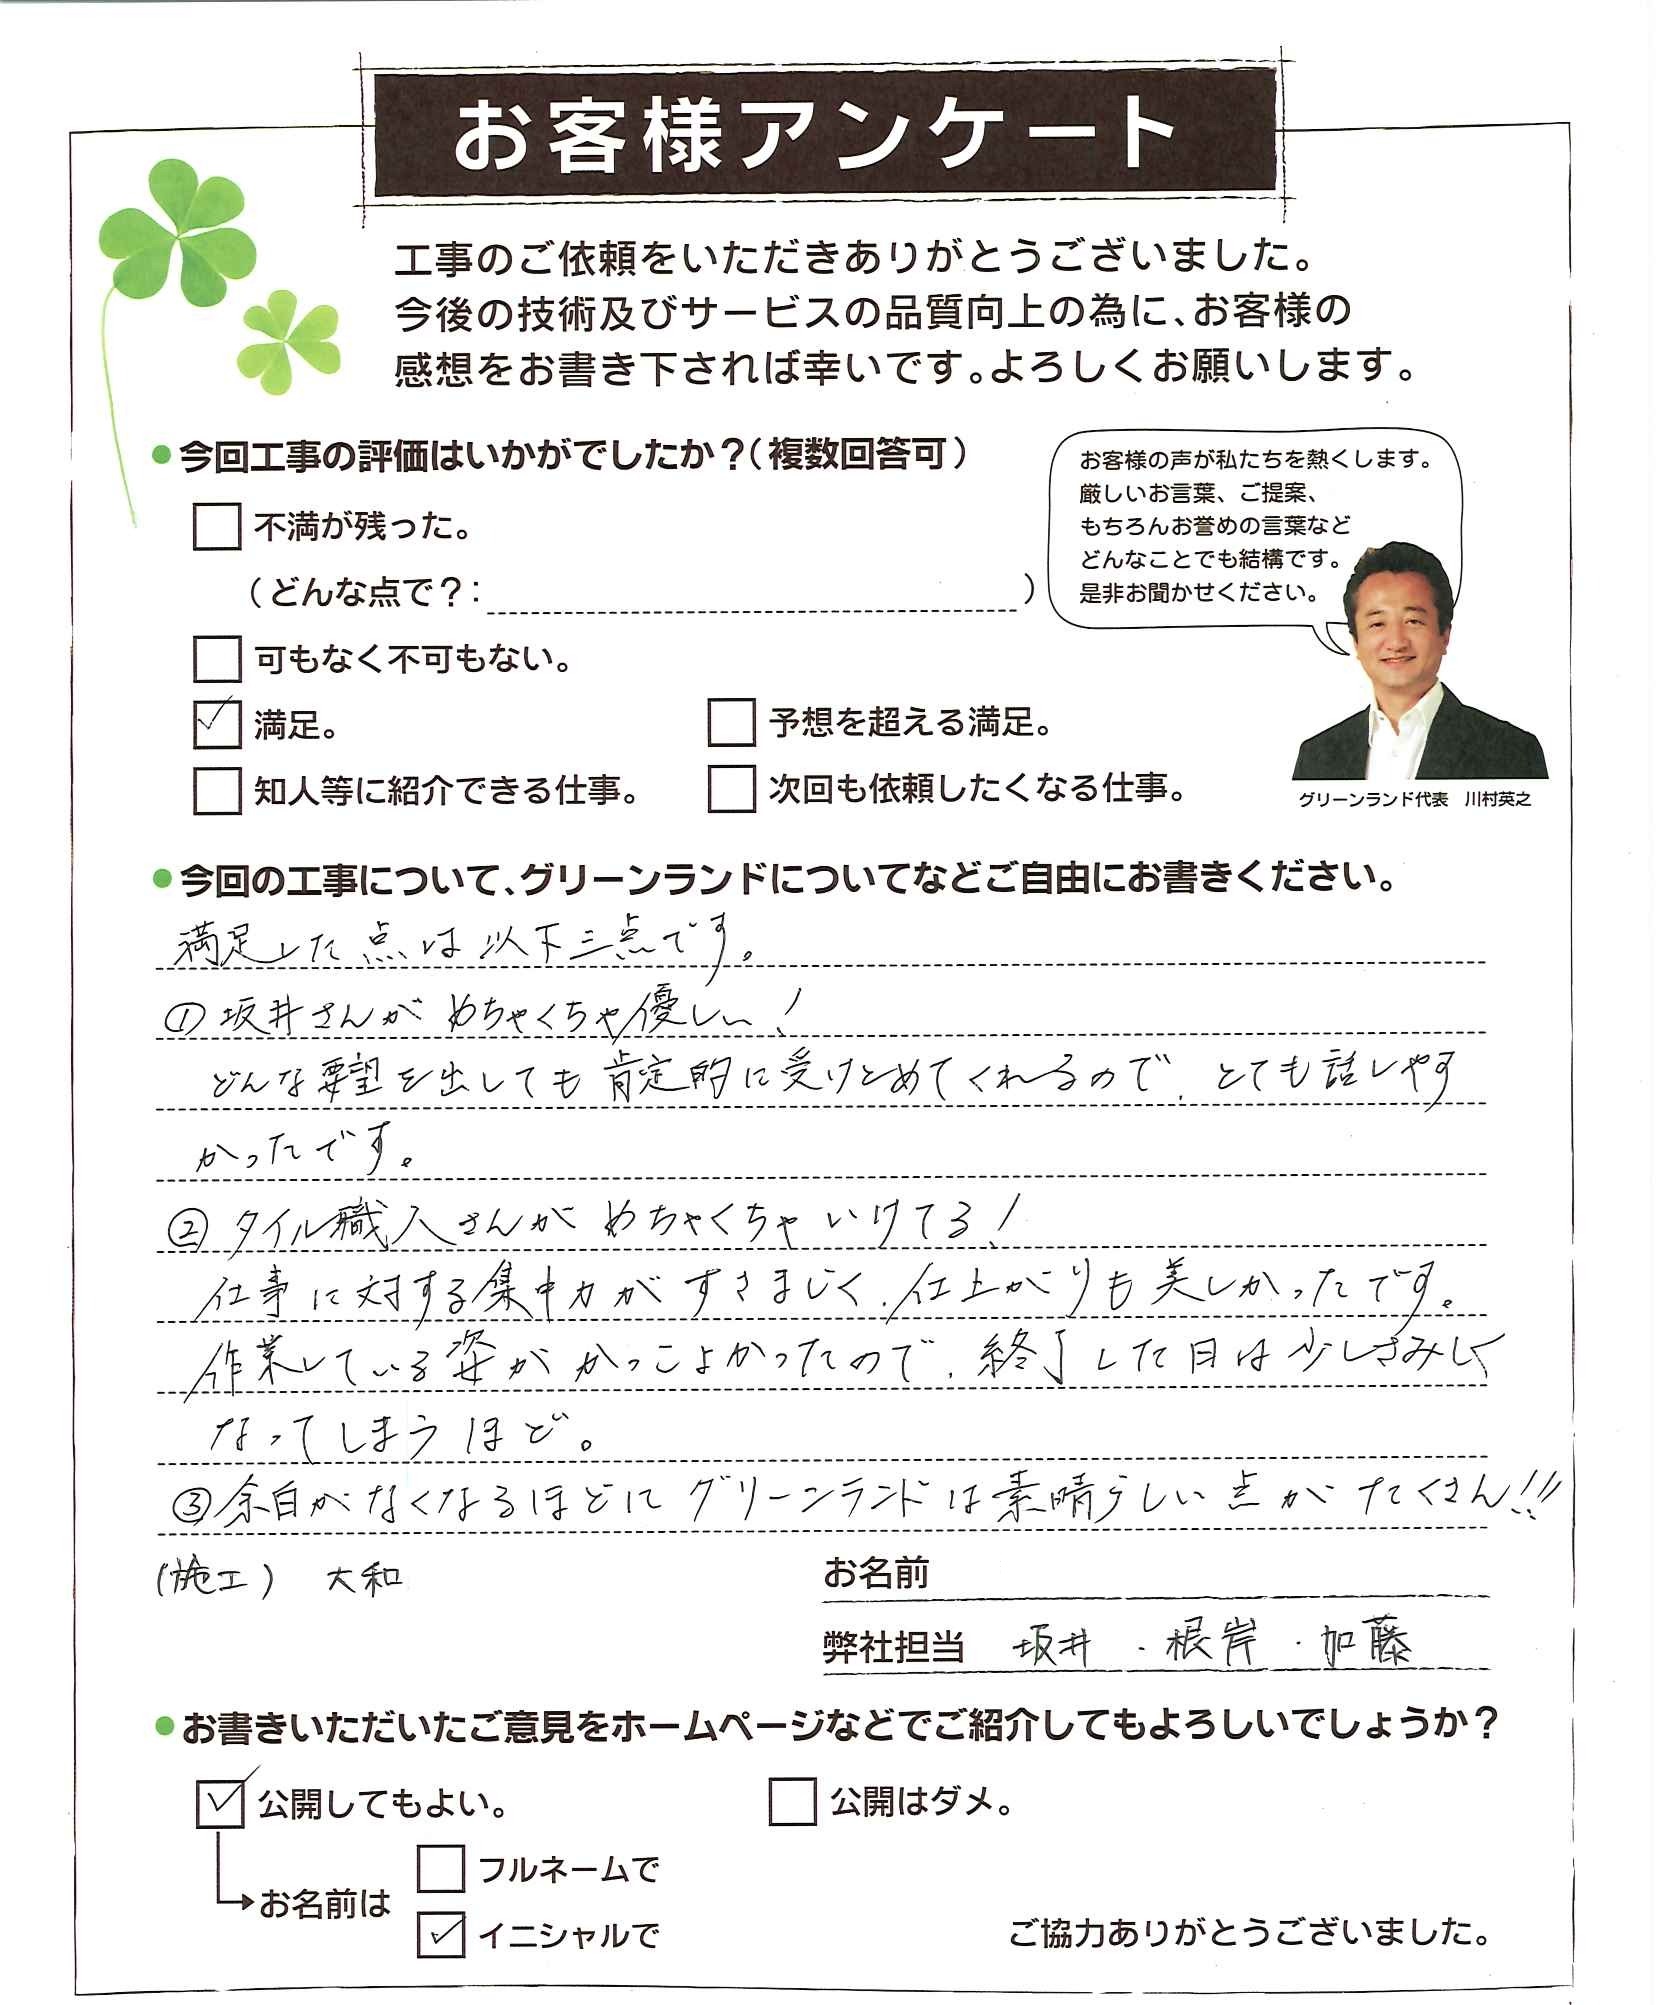 お客様アンケート
工事のご依頼をいただきありがとうございました。
今後の技術及びサービスの品質向上の為に、お客様の
感想をお書き下されば幸いです。よろしくお願いします。
今回工事の評価はいかがでしたか？（複数回答可）
不満が残った。
（どんな点で？：　）
可もなく不可もない。
満足。
予想を超える満足。
知人等に紹介できる仕事。
次回も依頼したくなる仕事。
お客様の声が私たちを熱くします。
厳しいお言葉、ご提案、
もちろんお誉めの言葉など
どんなことでも結構です。
是非お聞かせください。
グリーンランド代表　川村英之
今回の工事について、グリーンランドについてなどご自由にお書きください。
満足した点は以下三点です。
①坂井さんがめちゃくちゃ優しい！
どんな要望を出しても肯定的に受けとめてくれるので、とても話しやす
かったです。
②タイル職人さんがめちゃくちゃいけてる！
仕事に対する集中力がすさまじく、仕上がりも美しかったです。
作業している姿がかっこよかったので、終了した日は少しさみしく
なってしまうほど。
③余白がなくなるほどにグリーンランドは素晴らしい点がたくさん!!
(施工)　大和
お名前
弊社担当　坂井・根岸・加藤
お書きいただいたご意見をホームページなどでご紹介してもよろしいでしょうか？
公開してもよい。
公開はダメ。
お名前は
フルネームで
イニシャルで
ご協力ありがとうございました。